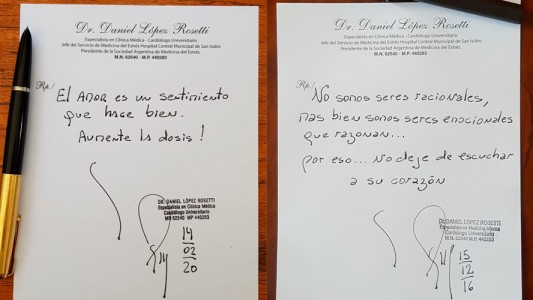 Dr. Daniel López Rosetti
Especialista en Clínica Médica - Cardiólogo Universitario
Jefe del Servicio de Medicina del Estrés Hospital Central Municipal de San Isidro
Presidente de la Sociedad Argentina de Medicina del Estrés.
M.N. 62540 - M.P. 440203
Rp./
El amor es un sentimiento
que hace bien.
Aumente la dosis!
DR. DANIEL LÓPEZ ROSETTI
Especialista en Clínica Médica
Cardiólogo Universitario
MN 62540 MP 440203
14
02
20
Dr. Daniel López Rosetti
Especialista en Clínica Médica - Cardiólogo Universitario
Jefe del Servicio de Medicina del Estrés Hospital Central Municipal de San Isidro
Presidente de la Sociedad Argentina de Medicina del Estrés.
M.N. 62540 - M.P. 440203
Rp./
No somos seres racionales,
mas bien somos seres emocionales
que razonan...
por eso... No deje de escuchar
a su corazón
Dr. DANIEL LÓPEZ ROSETTI
Especialista en Medicina Interna
Cardiólogo Universitario
M.N. 62540 M.P. 440203
15
12
16